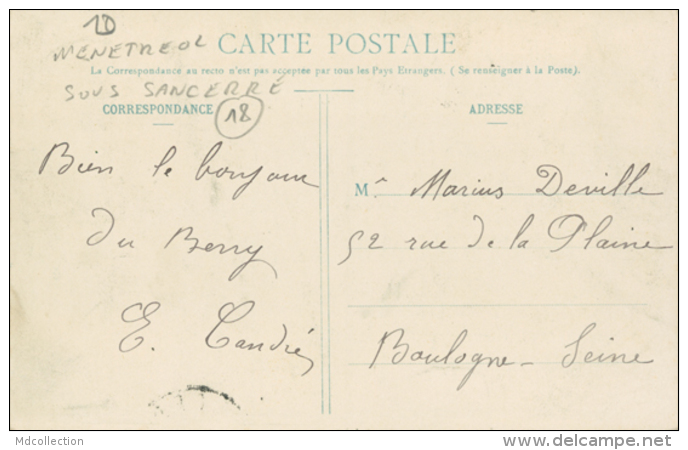 10
MENETREOL
CARTE POSTALE
La Correspondance au recto n'est pas acceptée par tous les Pays Etrangers. (Se renseigner à la Poste).
SOUS SANCERRE
CORRESPONDANCE
18
Bien le bonjour
du Berry
E.
ADRESSE
Mr. Marius Deville
52 rue de la Plaine
Boulogne - Seine
Mdcollection
www.delcampe.net